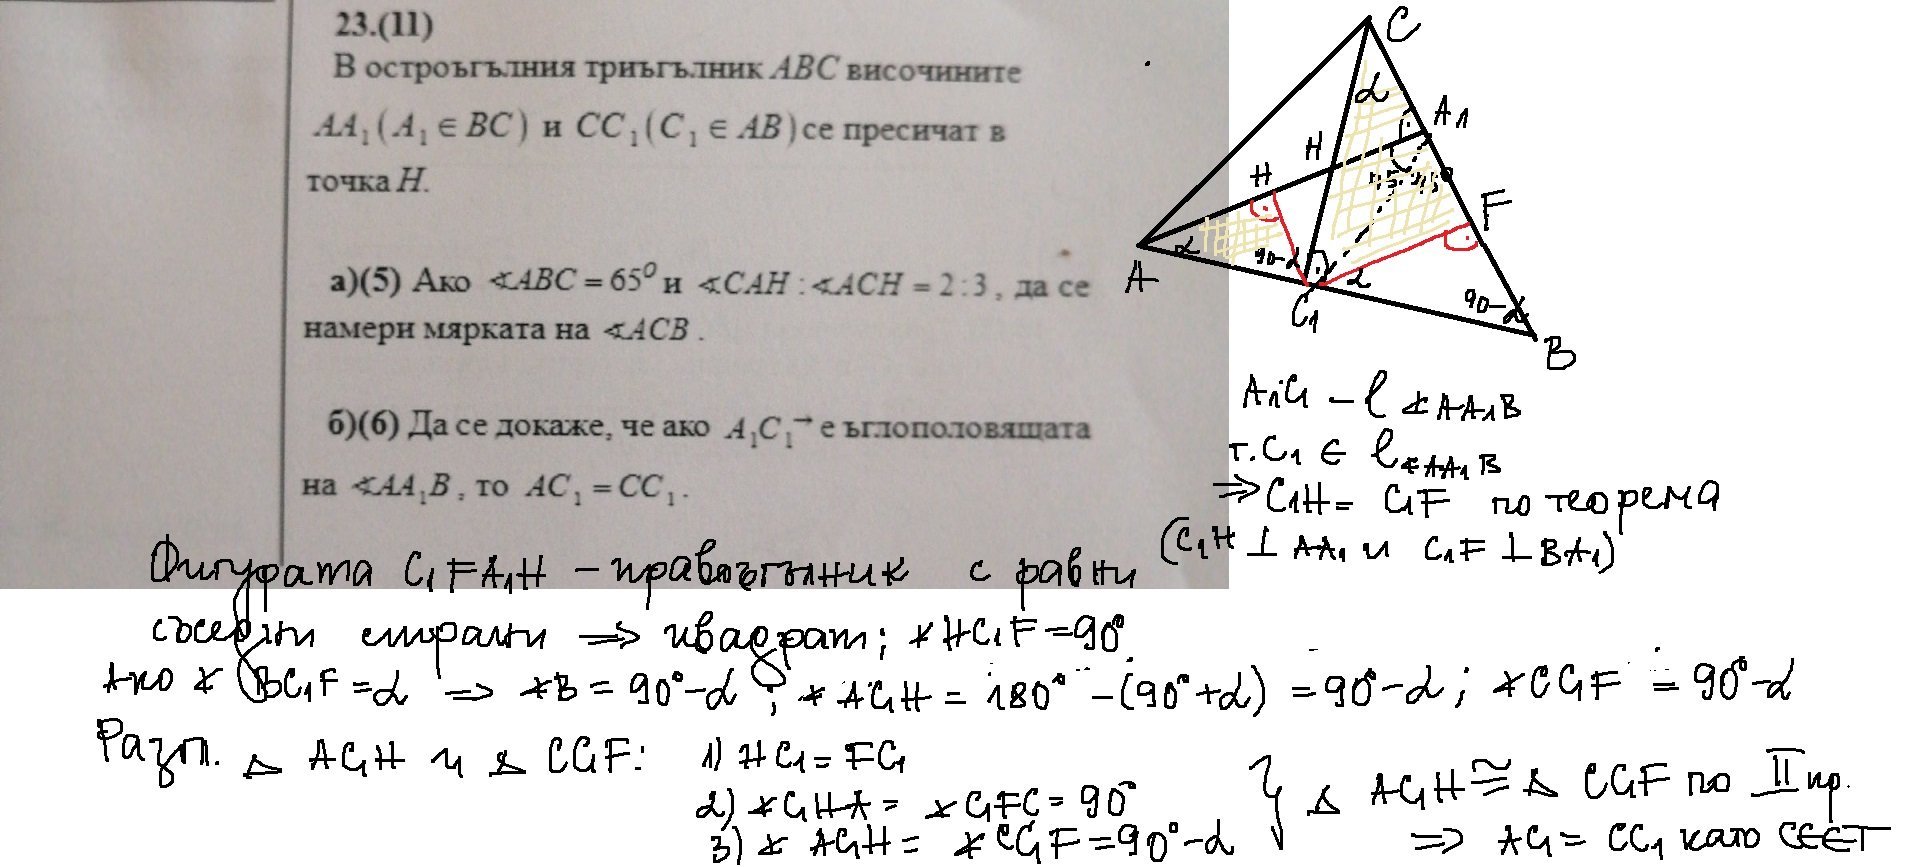 23.(11)
В остроъгълния триъгълник ABC височините
AA₁(A₁ ∈ BC) и CC₁(C₁ ∈ AB)се пресичат в
точка H.
а)(5) Ако ∢ABC = 65⁰ и ∢CAH : ∢ACH = 2 : 3, да се
намери мярката на ∢ACB .
б)(6) Да се докаже, че ако A₁C₁→ е ъглополовящата
на ∢AA₁B, то AC₁ = CC₁.
C
α
A₁
H
H
F
A
α
90-α
α
C₁
90-α
B
A₁C₁ - l ∢AA₁B
т. C₁ ∈ l∢AA₁B
⇒ C₁H = C₁F по теорема
(C₁H ⊥ AA₁ и C₁F ⊥ BA₁)
Фигурата C₁FA₁H - правоъгълник с равни
съседни страни ⇒ квадрат; ∢HC₁F = 90°
Ако ∢BC₁F = α ⇒ ∢B = 90° - α; ∢AC₁H = 180° - (90° + α) = 90° - α; ∢CC₁F = 90° - α
Разгл. △ AC₁H и △ CC₁F: 1) HC₁ = FC₁
2) ∢C₁HA = ∢C₁FC = 90°
3) ∢AC₁H = ∢CC₁F = 90° - α
} △ AC₁H ≅ △ CC₁F по II пр.
⇒ AC₁ = CC₁ като СЕЕТ